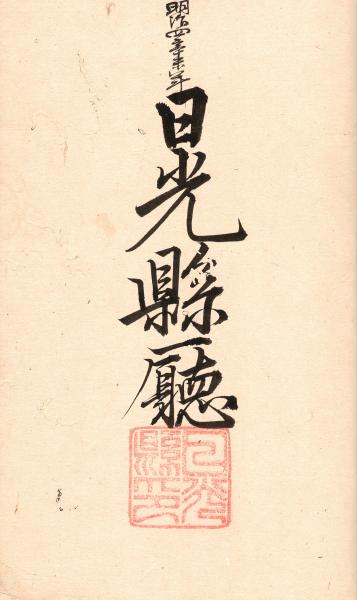 明治四辛未年
日光縣廳
日光縣印